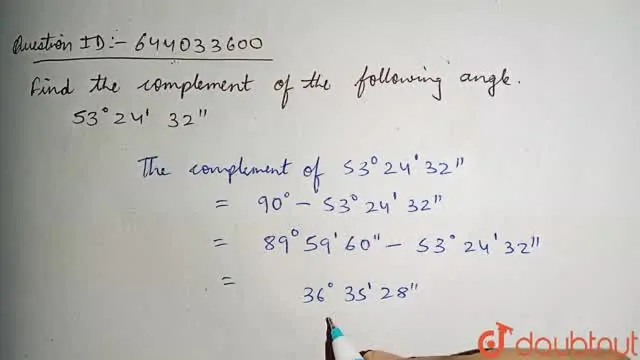 Question ID:- 644033600
Find the complement of the following angle.
53° 24' 32"
The complement of 53° 24' 32"
= 90° - 53° 24' 32"
= 89° 59' 60" - 53° 24' 32"
=
36° 35' 28"
doubtnut